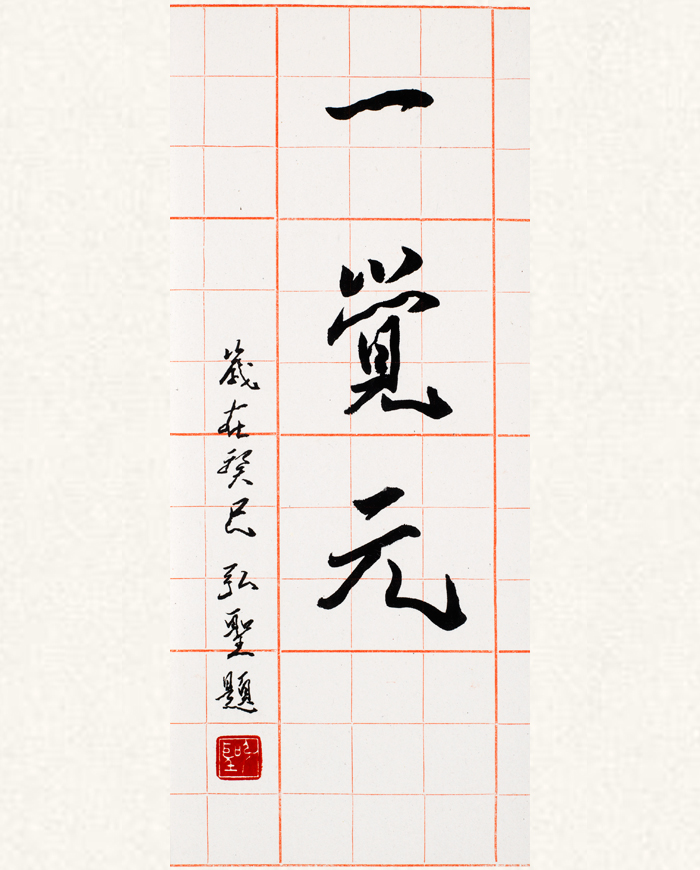 一覺元
歲在癸巳 弘聖題